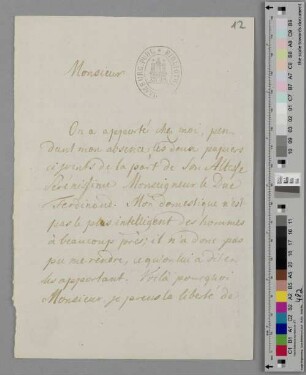 12
Monsieur
On a apporté chez moi, pen-
dant mon absence, les deux papiers
ci joints de la part de Son Altesse
Serenissime Monseigneur le Duc
Ferdinand. Mon domestique n'est
pas le plus intelligent des hommes
à beaucoup près; il n'a donc pas
pu me redire, ce qu'on lui a dit en
les apportant. Voilà pourquoi
Monsieur, je prens la liberté de